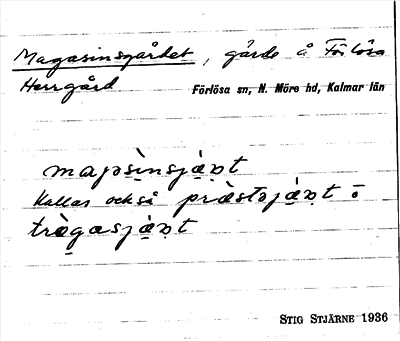 Magasinsgärdet, gärde å Förlösa
Herrgård Förlösa sn, N. Möre hd, Kalmar län
mapsìnsjæ̀ṿt
Kallas också præ̀stəjæ̀ṿt ō
trægasjæ̀ṿt
STIG STJÄRNE 1936